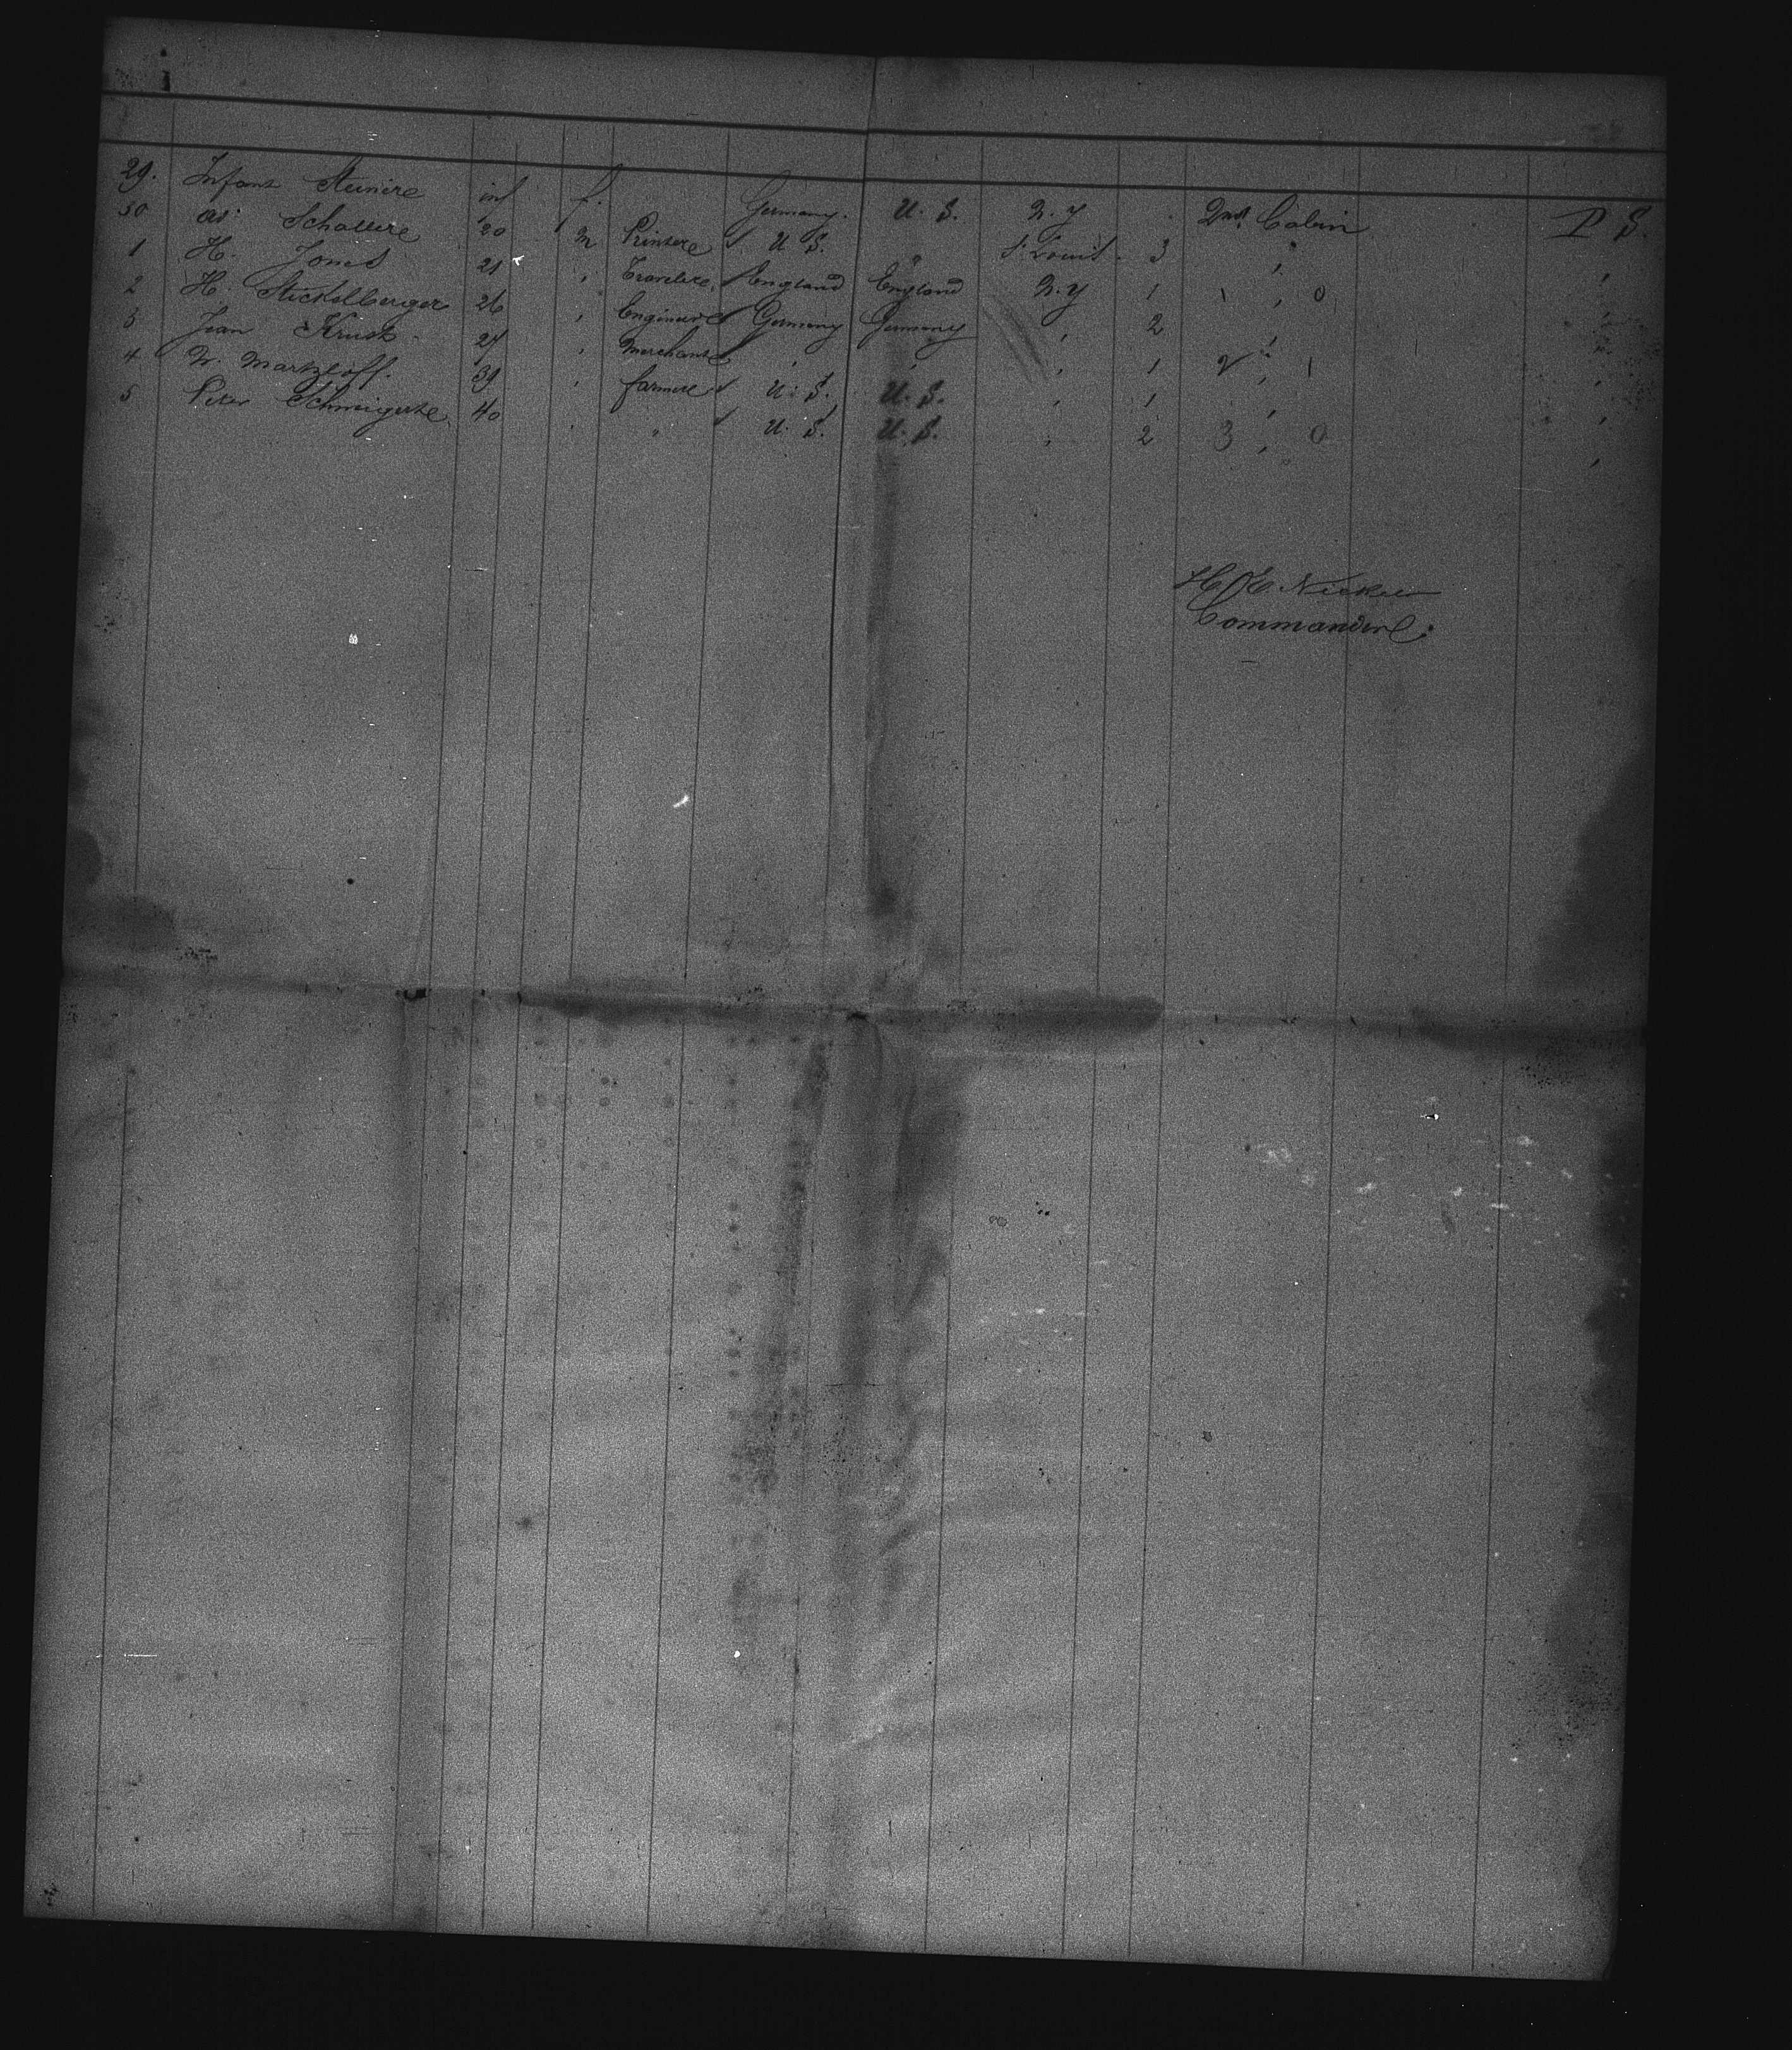 29. Infant Steinere inf f. Germany. U. S. N. Y 2nd Cabin P S.
30 Schallere 20 m Printere U S. " St Louis. 3 "
1 H. Jones 21 " Travelere England England N. Y 1 1 , 0 ,
2 H. Stickelberger 26 , Engineere Germany Germany , 2 ,
3 Jean Krusk 27 , Merchante , , , 1 2 , 1
4 N. Martzloff. 39 , farmere U. S. U. S. , 1 , ,
5 Peter 40 , " U. S. U. S. , 2 3 , 0 ,
Commandere.